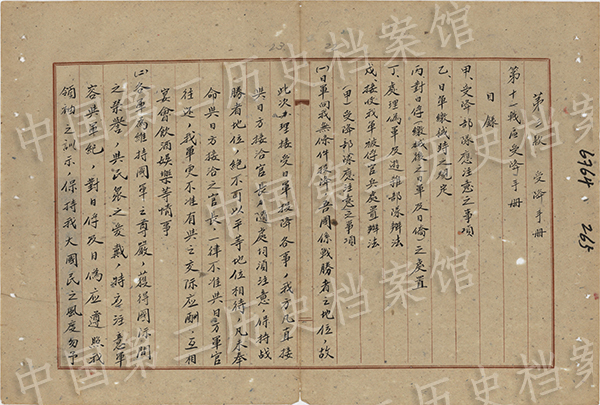 受降手册
第十一戰區受降手册
目錄
甲、受降部隊應注意之事項
乙、日軍繳械時之規定
丙、對日俘(繳械後之日軍及日僑)之處置
丁、處理偽軍及游雜部隊辦法
戊、接收我軍被俘官兵處置辦法
(甲)受降部隊應注意之事項
(一)日軍向我無條件投降,吾國係戰勝者之地位,故
此次辦理接受日軍投降各事,我方凡直接
與日方接洽官長,隨處均須注意,保持戰
勝者地位,絕不可以平等地位相待,凡未奉
命與日方接洽之官長,一律不准與日方軍官
往還,我軍更不准有與之交際應酬,互相
宴會飲酒娛樂等情事
(二)各軍為維持國軍之尊嚴,獲得國際間
之榮譽,與民眾之愛戴,特應注意軍
容與軍紀 對日俘及日偽應遵照我
領袖之訓示,保持我大國民之風度勿予
6764 265
中国第二历史档案馆
中国第二历史档案馆
中国第二历史档案馆